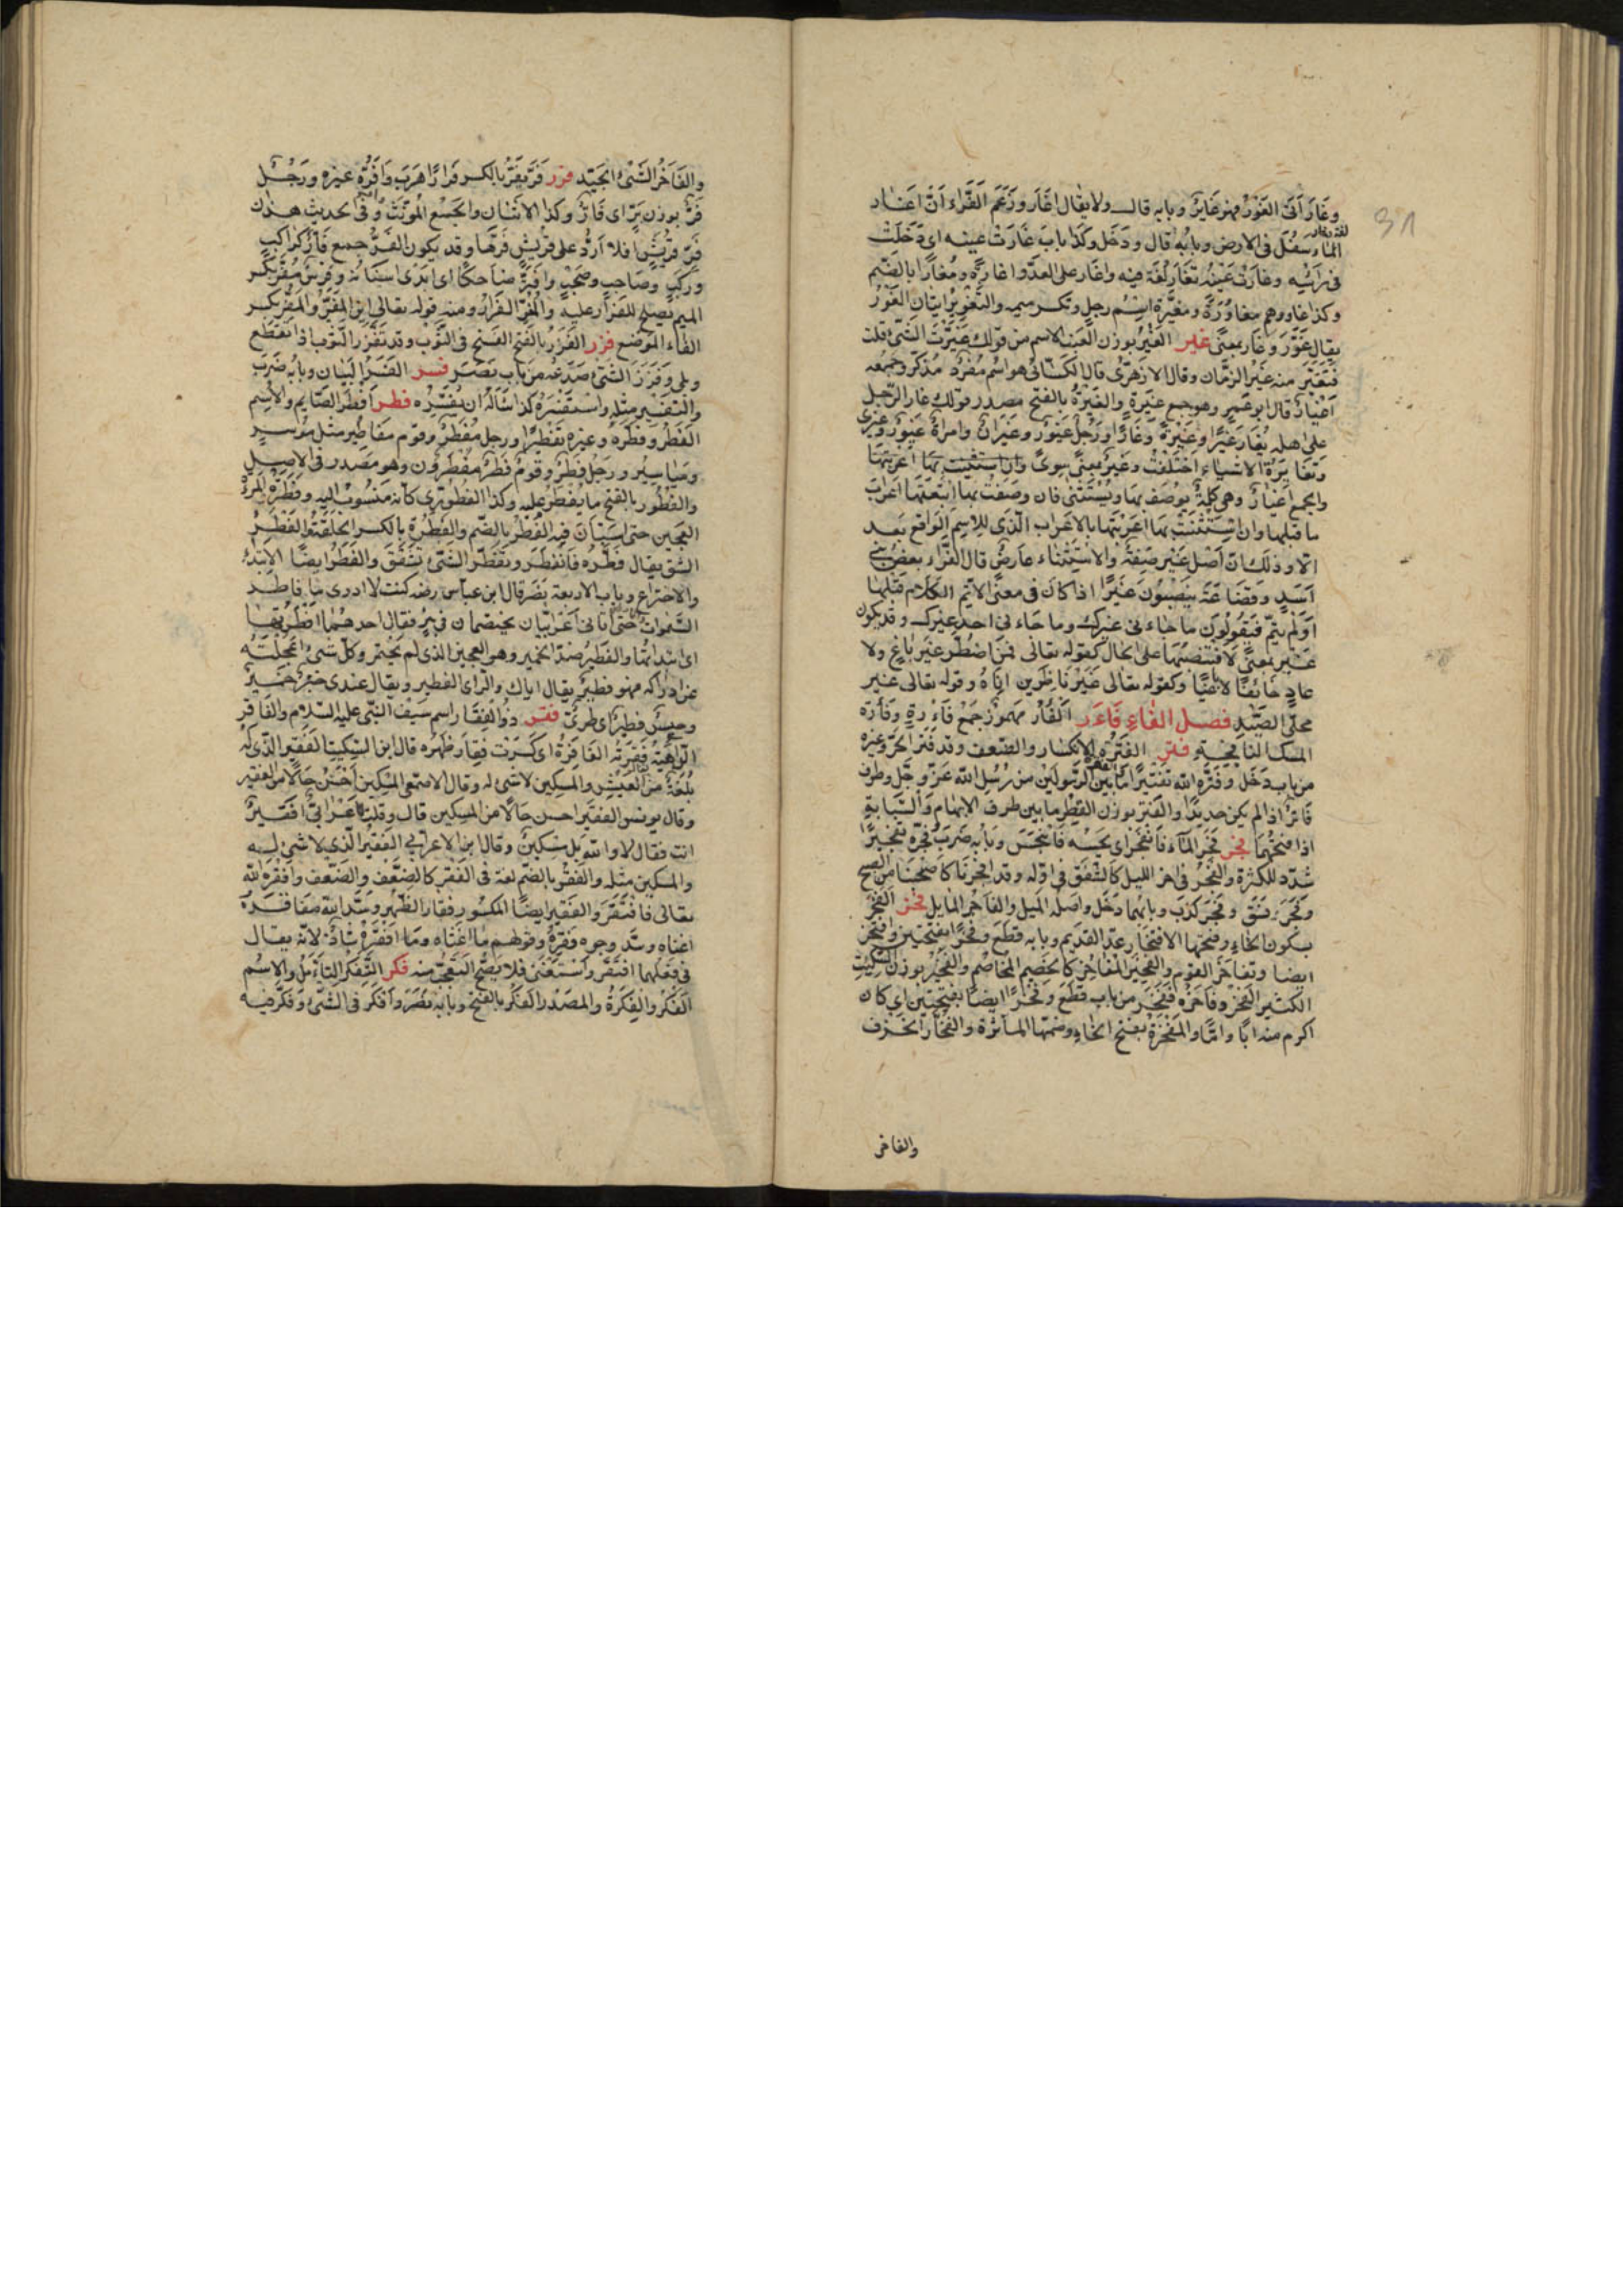 وغَارَ أتى الغَوْرَ فهو غَايِرٌ وبابه قال ولا يقال اغَارَ وزعَم الفَرَّاء انّ اغار
لغة وغار
الماء سَفُلَ فى الارض وبابُه قال ودَخَل وكذا بابُ غارَتْ عينه اى دَخَلَتْ
فى رأسه وغارت عينه تغَار لغة فيه واغار على العدوّ اغارَة ومُغارًا بالضم
وكذا غاورهم مغاوَرَةً ومغيرة اسم رجل وتكسر ميمه والتغوير اتيان الغَوْر
يقال غَوَّرَ وغار بمعنًى غير الغِيَرُ بوزن العنب الاسم من قولك غيّرت الشئ
فتغيّر منه غِيَرُ الزمان وقال الازهرى قال الكسائى هو اسم مفرد مذكر وجمعه
اغيار قال ابو عمرو هو جمع غيرة والغَيرة بالفتح مصدر قولك غار الرجل
على اهله يغار غيرًا وغيرةً وغارًا ورجل غيور وغيران وامراة غيور وغيرى
وتغايرت الاشياء اختلفت وغير بمعنى سوى
والجمع اغيار وهى كلمة يوصف بها ويستثنى فان وصفت بها اتبعتها اعراب
ما قبلها وان استثنيت بها اعربتها بالاعراب الذى للاسم الواقع بعد
الا وذلك ان اصل غير صفة والاستثناء عارض قال الفراء بعض بنى
اسد وقضاعة ينصبون غيرًا اذا كان فى معنى الا تم الكلام قبلها
اولم يتم فيقولون ما جاءنى غيرك وما جاءنى احد غيرك وقد يكون
غير بمعنى لا فتنصبها على الحال كقوله تعالى فمن اضطر غير باغ ولا
عاد خائفًا لا باغيًا وكقوله تعالى غير ناظرين اناه وقوله تعالى غير
محلى الصيد فصل الفاء فأر الفأر مهموز جمع فأرة وفأرة
المسك النافجة فتر الفترة الانكسار والضعف وقد فتر الحر وغيره
من باب دخل وفتّره الله تفتيرًا ما بين الرسولين من رسل الله عز وجل وطرف
فاتر اذا لم يكن حديدًا والفتر بوزن الفطر ما بين طرف الابهام والسبابة
اذا فتحتهما فجر فجر الماء فانفجر اى بجسه فانبجس وبابه ضرب فجره تفجيرًا
شدد للكثرة والفجر فى اخر الليل كالشفق فى اوله وقد افجرنا كاصبحنا من الصبح
وفجر فسق وفجر كذب وبابهما دخل واصله الميل والفاجر المايل فخر الفخر
بسكون الخاء وفتحها الافتخار عد القديم وبابه قطع وفخرًا بفتحتين وافتخر
ايضا وتفاخر القوم والفخير المفاخر كالخصيم المخاصم والفخير بوزن السكيت
الكثير الفخر وفاخره ففخره من باب قطع وفخرًا ايضًا بفتحتين اى كان
اكرم منه ابًا وامًا والمفخرة بفتح الخاء وضمها المأثرة والفخار الخزف
والفاخر
والفَاخُر الشئ الجيّد فرر فرّ يفرّ بالكسر فرارًا هرب وافرّه غيره ورجل
فرّ بوزن برّ اى فارّ وكذا الاثنان والجمع المونث وفى الحديث هذان
فرّ قريش افلا اردّ على قريش فرّها وقد يكون الفرّ جمع فارّ كراكب
وركب وصاحب وصحب وافترّ ضاحكًا اى ابدى اسنانه وفرس مفر بكسر
الميم يصلح للفرار عليه والمفر الفرار ومنه قوله تعالى اين المفر والمفر بكسر
الفاء الموضع فزر الفزر بالفتح الفسخ فى الثوب وقد تفزر الثوب اذا تقطع
وبلى وفزر الشئ صدعه من باب نصر فسر الفسر البيان وبابه ضرب
والتفسير مثله واستفسره كذا سأله ان يفسره فطر افطر الصايم والاسم
الفطر وفطره غيره تفطيرًا ورجل مفطر وقوم مفاطير مثل موسر
ومياسير ورجل فطر وقوم فطر مفطرون وهو مصدر فى الاصل
والفطور بالفتح ما يفطر عليه وكذا الفطورى كانه منسوب اليه وفطرت المرأة
العجين حتى استبان فيه الفطر بالضم والفطرة بالكسر الخلقة والفطر
الشق يقال فطره فانفطر وتفطر الشئ تشقق والفطر ايضًا الابتداء
والاختراع وباب الاربعة نصر قال ابن عباس رضه كنت لا ادرى ما فاطر
السموات حتى اتانى اعرابيان يختصمان فى بير فقال احدهما انا فطرتها
اى ابتداتها والفطير ضد الخمير وهو العجين الذى لم يختمر وكل شئ اعجلته
عن ادراكه فهو فطير يقال اياك والراى الفطير ويقال عندى خبز خمير
وحيس فطير اى طرى فقر ذو الفقار اسم سيف النبى عليه السلام والفاقرة
الداهية فقرته الفاقرة اى كسرت فقار ظهره قال ابن السكيت الفقير الذى له
بلغة من العيش والمسكين لا شئ له وقال الاصمعى المسكين احسن حالا من الفقير
وقال يونس الفقير احسن حالا من المسكين قال وقلت لاعرابى افقير
انت فقال لا والله بل مسكين وقال ابن الاعرابى الفقير الذى لا شئ له
والمسكين مثله والفقر بالضم لغة فى الفقر كالضعف والضعف وافقره الله
تعالى فافتقر والفقير ايضًا المكسور فقار الظهر وسد الله مفاقره
اغناه وسد وجوه فقره وقولهم ما اغناه وما افقره شاذ لانه يقال
فى فعلهما افتقر واستغنى فلا يصح التعجب منه فكر التفكر التأمل والاسم
الفكر والفكرة والمصدر الفكر بالفتح وبابه نصر وافكر فى الشئ وفكر فيه